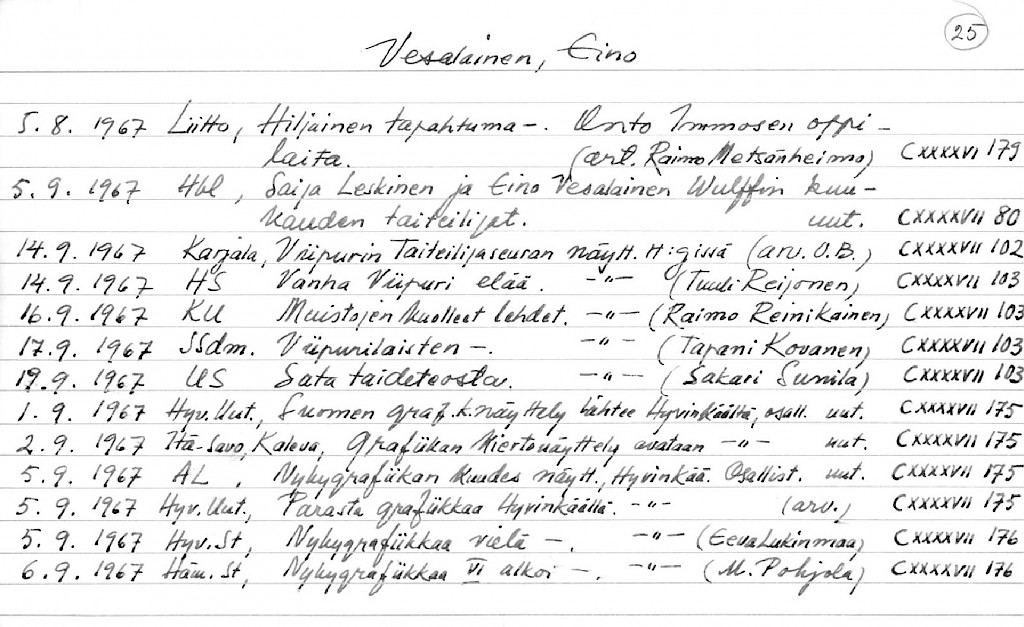 25
Vesalainen, Eino
5.8. 1967 Liitto, Hiljainen tapahtuma -. Onto Immosen oppi-
laita. (art. Raimo Metsänheimo) CXXXXVI 179
5.9. 1967 Hbl, Saija Leskinen ja Eino Vesalainen Wulffin kuu-
kauden taiteilijat. uut. CXXXXVII 80
14.9. 1967 Karjala, Viipurin Taiteilijaseuran näytt. H:gissä (arv. O.B.) CXXXXVII 102
14.9. 1967 HS Vanha Viipuri elää. -"- (Tuuli Reijonen) CXXXXVII 103
16.9. 1967 KU Muistojen kuolleet lehdet. -"- (Raimo Reinikainen) CXXXXVII 103
17.9. 1967 SSdm. Viipurilaisten -. -"- (Tapani Kovanen) CXXXXVII 103
19.9. 1967 US Sata taideteosta. -"- (Sakari Sunila) CXXXXVII 103
1.9. 1967 Hyv.Uut., Suomen graf.k.näyttely lähtee Hyvinkäältä, osall. uut. CXXXXVII 175
2.9. 1967 Itä-Savo, Kaleva, Grafiikan kiertonäyttely avataan -"- uut. CXXXXVII 175
5.9. 1967 AL, Nykygrafiikan kuudes näytt., Hyvinkää. Osallist. uut. CXXXXVII 175
5.9. 1967 Hyv.Uut., Parasta grafiikkaa Hyvinkäällä. -"- (arv.) CXXXXVII 175
5.9. 1967 Hyv.St, Nykygrafiikkaa vielä -. -"- (Eeva Lukinmaa) CXXXXVII 176
6.9. 1967 Häm.St, Nykygrafiikkaa VI alkoi -. -"- (M. Pohjola) CXXXXVII 176